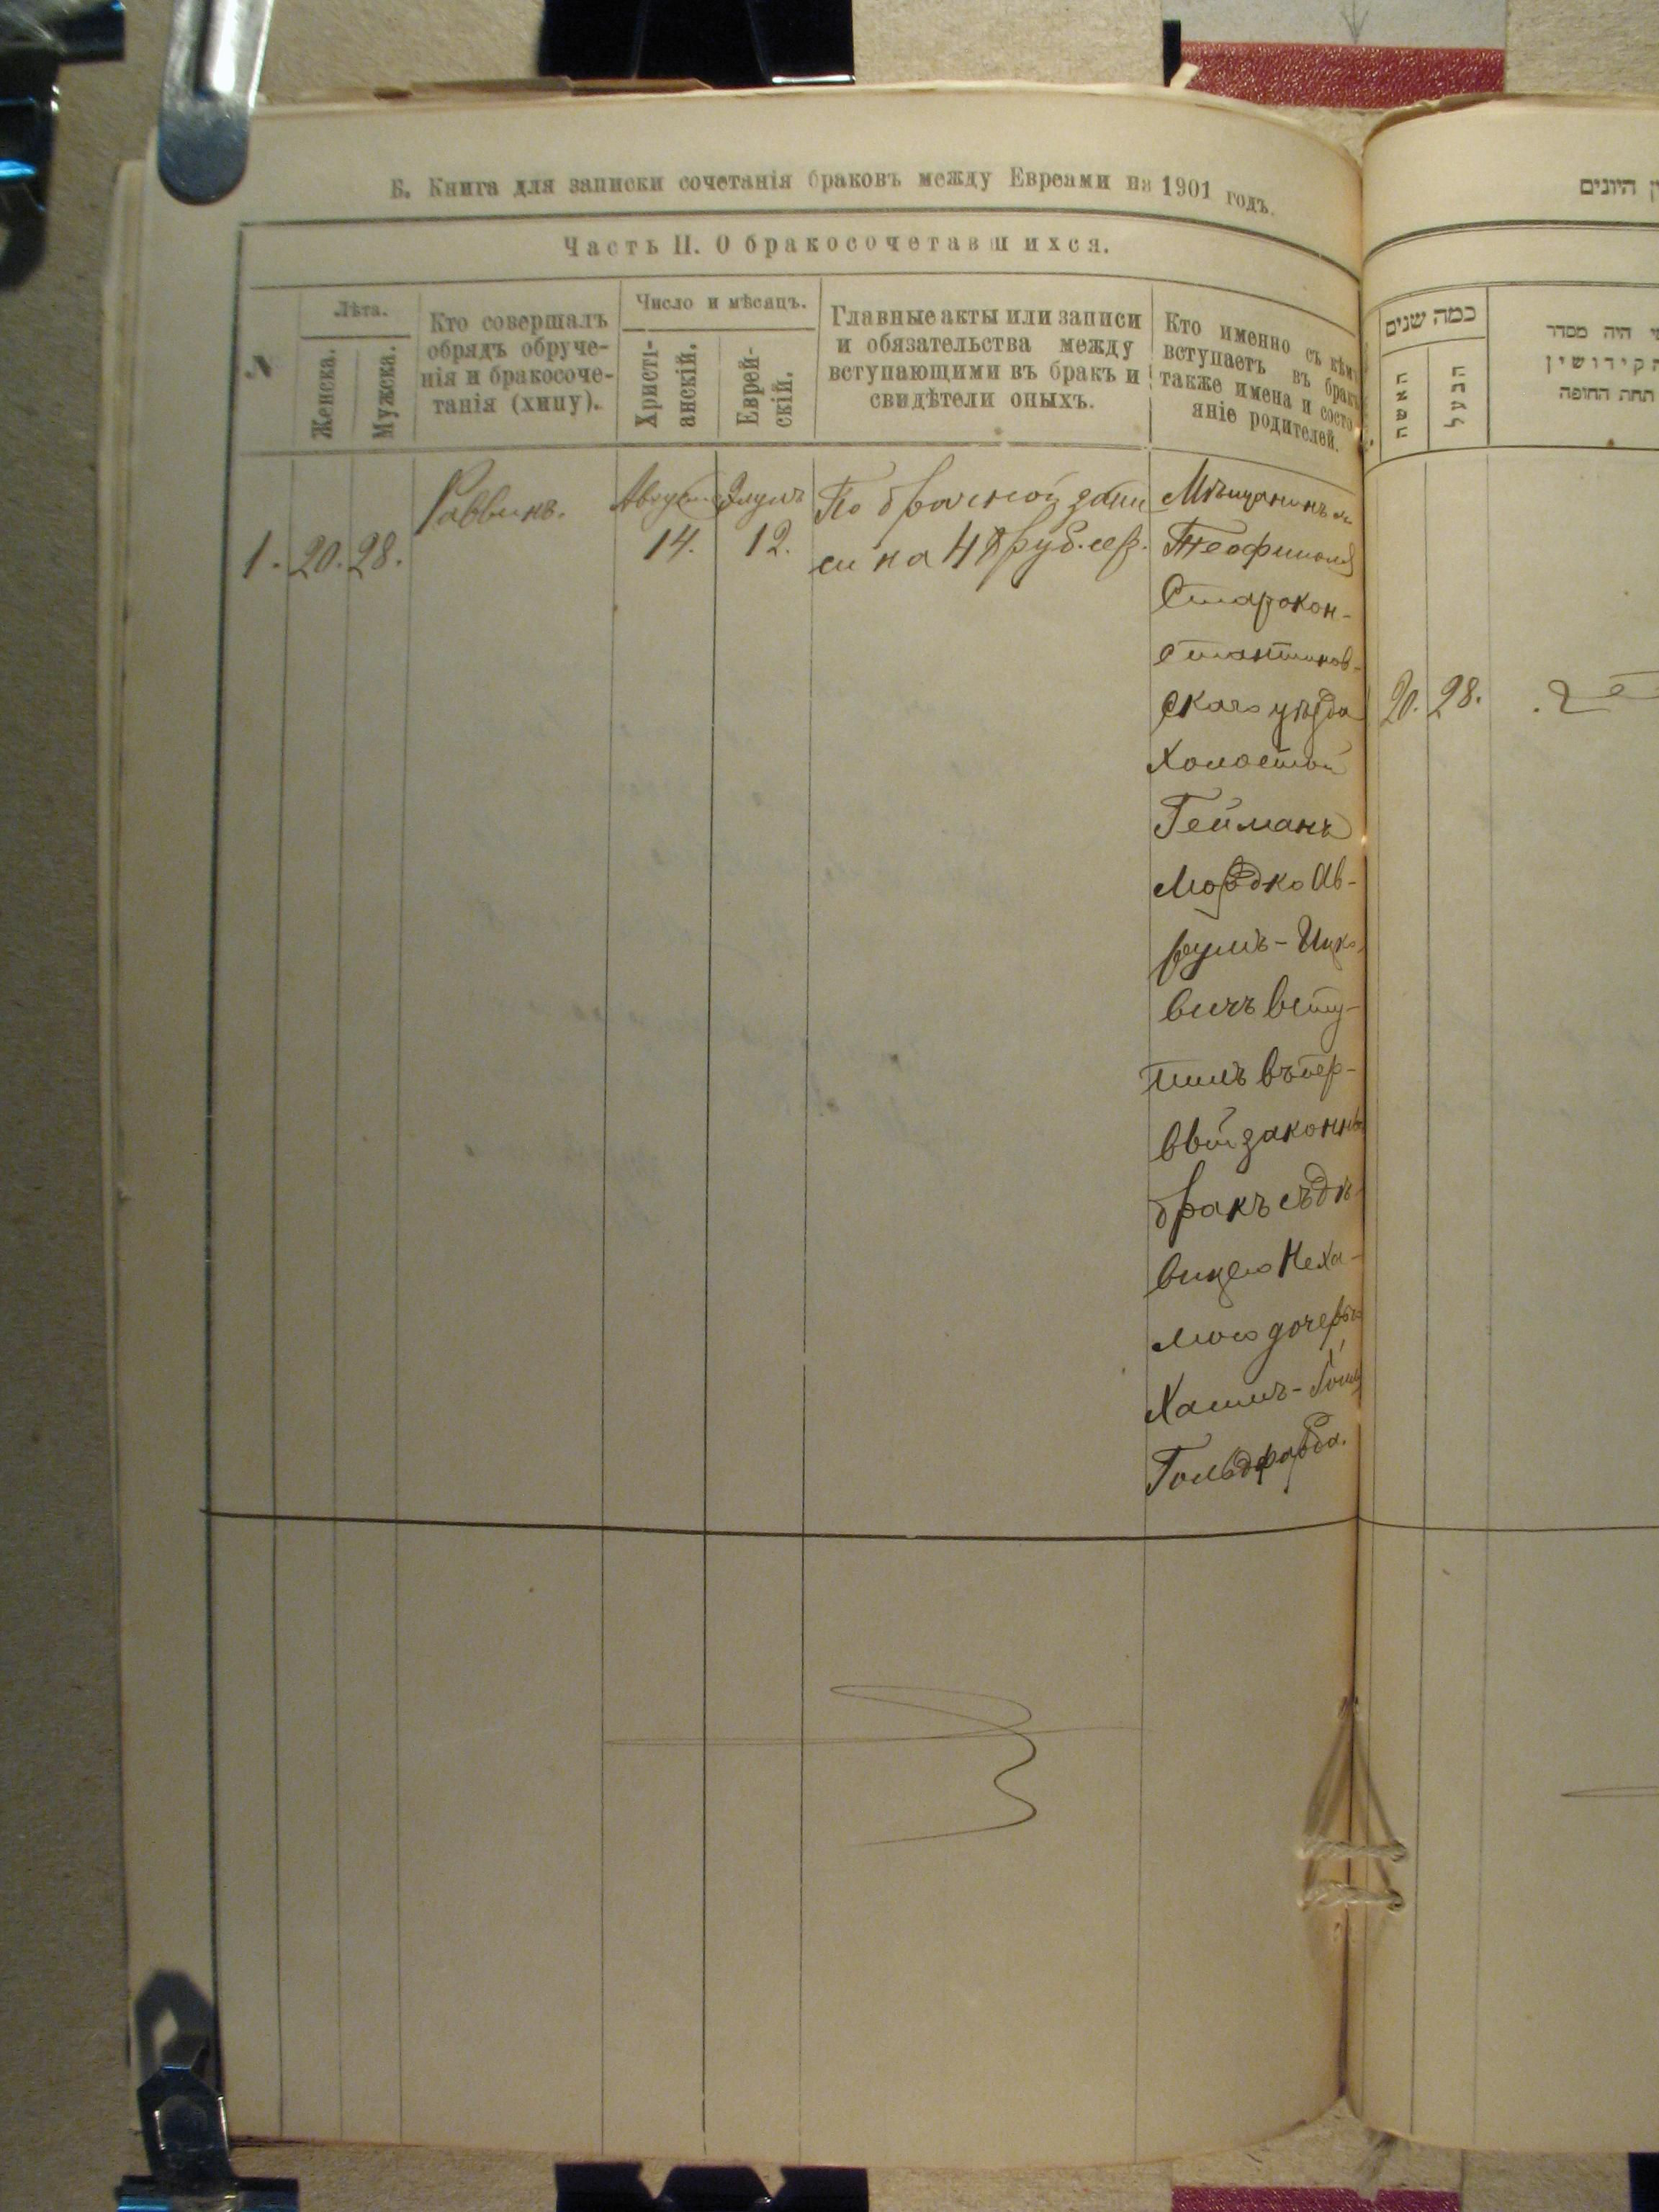 Б. Книга для записки сочетанія браковъ между Евреями на 1901 годъ.
Часть II. О бракосочетавшихся.
№
Лѣта.
Женска.
Мужска.
Кто совершалъ
обрядъ обруче-
нія и бракосоче-
танія (хипу).
Число и мѣсяцъ.
Христі-
анскій.
Еврей-
скій.
Главные акты или записи
и обязательства между
вступающими въ бракъ и
свидѣтели оныхъ.
Кто именно съ кѣмъ
вступаетъ въ бракъ
также имена и состо
яніе родителей.
1. 20. 28.
Раввинъ.
Августа
14.
Элулъ
12.
По брачной запи
си на 48 руб. сер.
Мѣщанинъ м
Теофиполя
Старокон-
стантинов-
скаго уѣзда
Холостой
Гейманъ
Мордко Ав-
румъ-Ицко
вичъ всту-
пилъ въ пер-
вый законны
бракъ съ дѣ
вицею Неха-
мою дочерью
Хаимъ-
Гольдфарба.
היונים
כמה שנים
האשה
הבעל
היה מסדר
הקידושין
תחת החופה
20. 28.